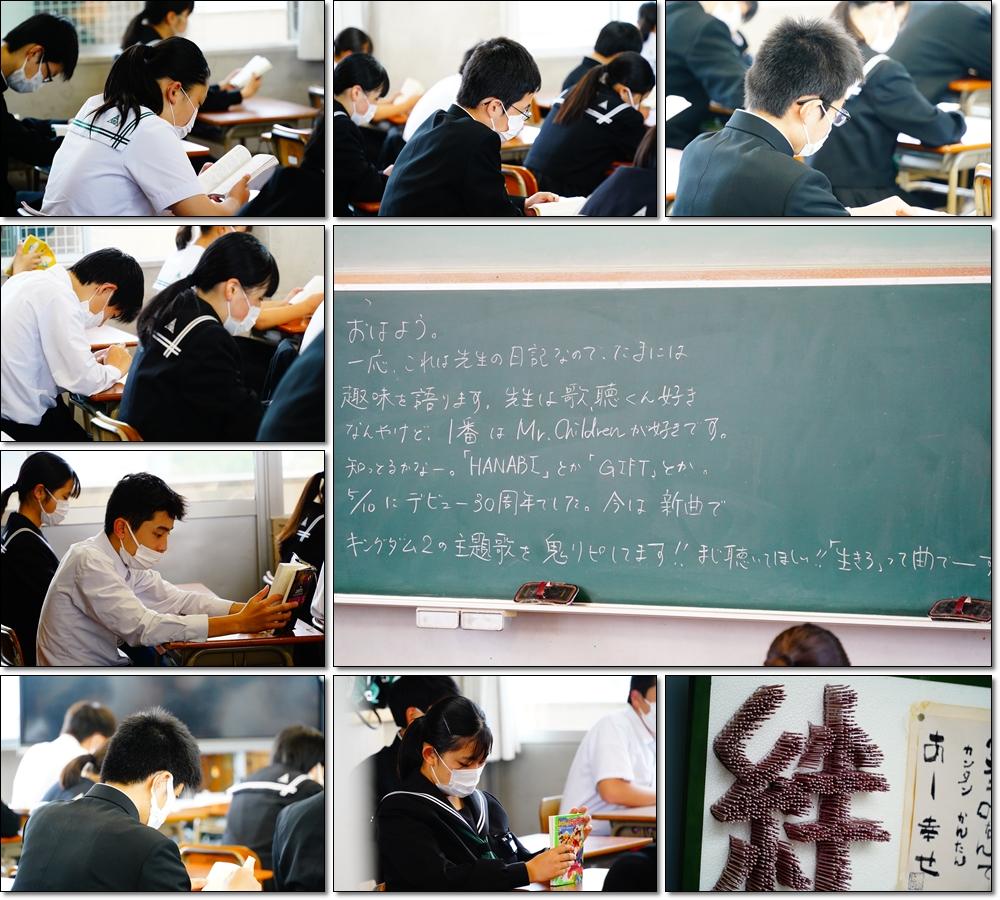 おはよう。
一応、これは先生の日記なので、たまには
趣味を語ります。先生は歌聴くん好き
なんやけど、1番は Mr.Children が好きです。
知ってるかなー。「HANABI」とか「GIFT」とか。
5/10 にデビュー30周年でした。今は新曲で
キングダム2の主題歌を鬼リピしてます!! まじ聴いてほしい!!「生きろ」って曲でーす
絆
カンタン かんたん
あー幸せ